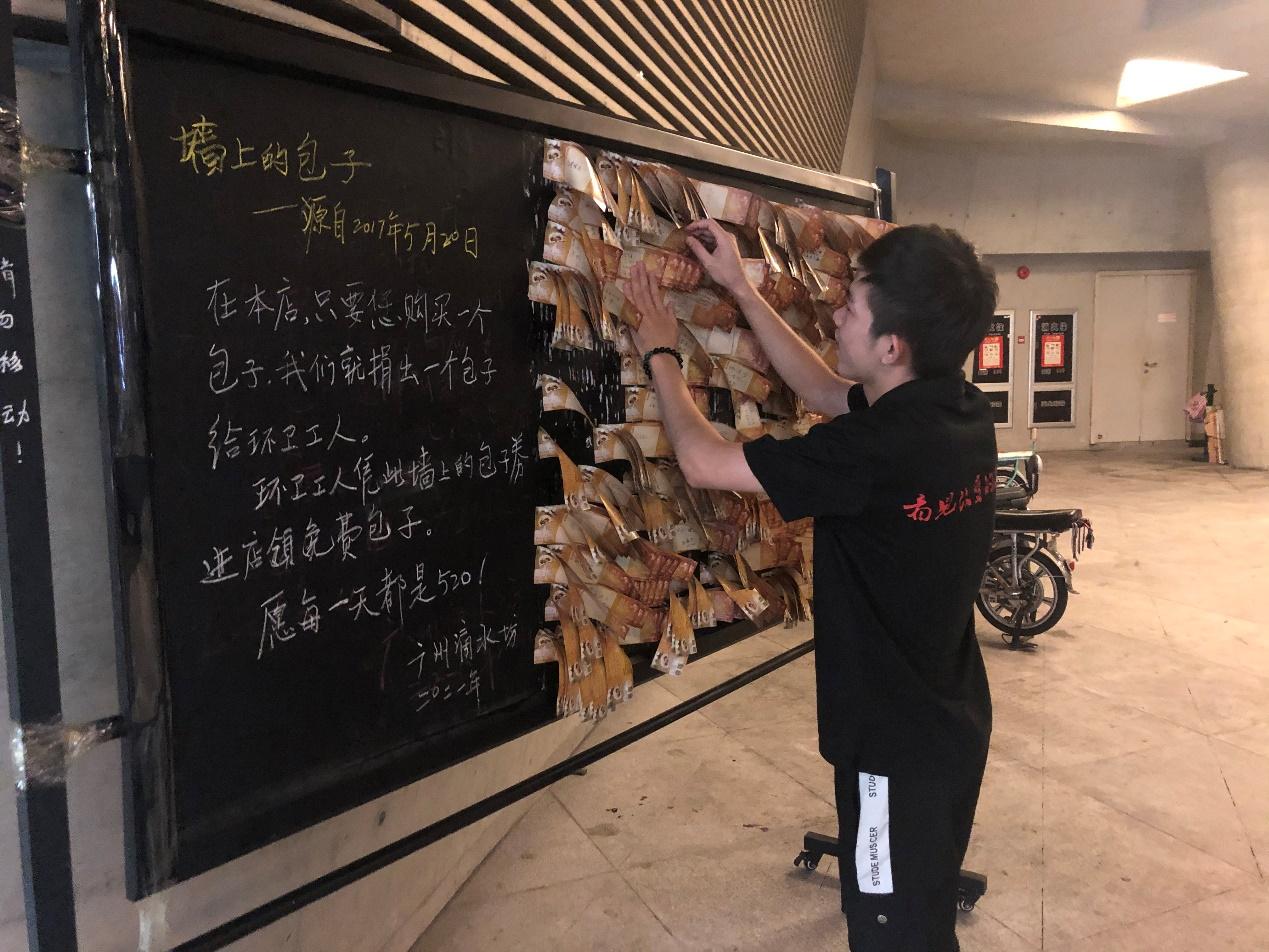 墙上的包子
一源自2017年5月20日
在本店,只要您购买一个
包子.我们就捐出一个包子
给环卫工人。
环卫工人凭此墙上的包子券
进店领免费包子。
愿每一天都是520!
广州滴水坊
二〇二一年
勿
移
动
!
STUDE MUSCER
STUD